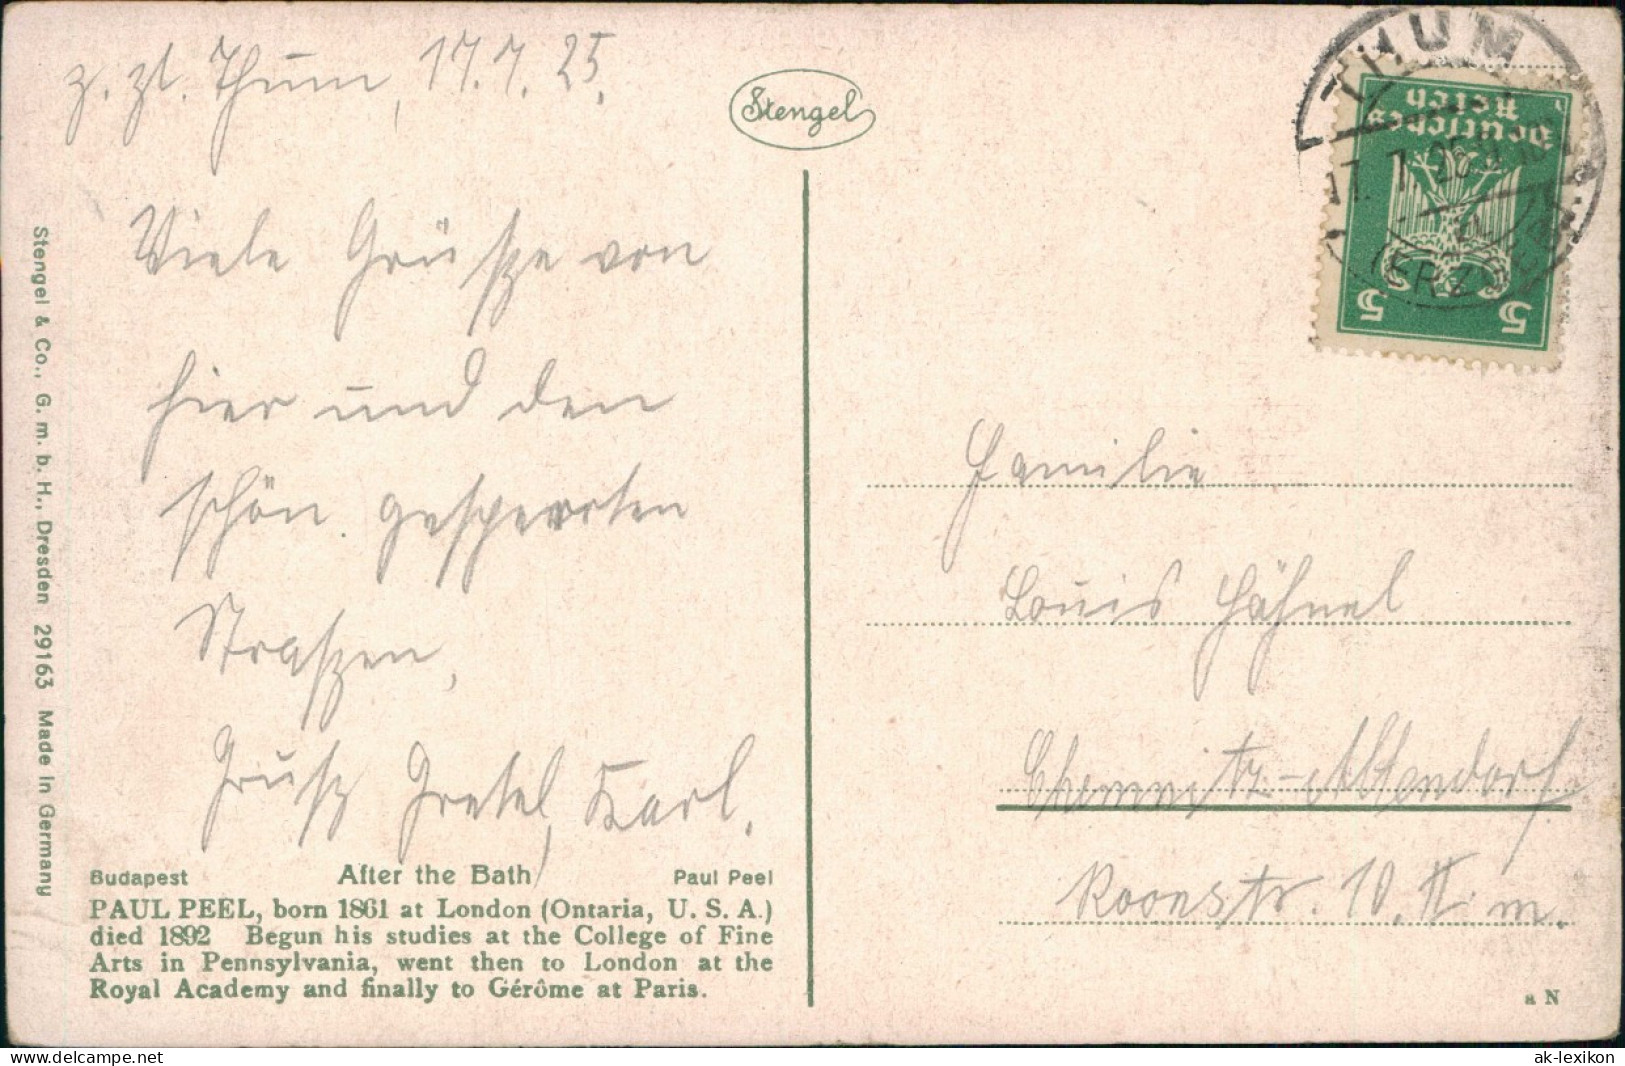 z. Zt. Thum, 17.7.25.
Stengel
Viele Grüße von
hier und den
schön gesperrten
Straßen,
Gruß Gretel, Karl.
Budapest After the Bath Paul Peel
PAUL PEEL, born 1861 at London (Ontaria, U. S. A.)
died 1892 Begun his studies at the College of Fine
Arts in Pennsylvania, went then to London at the
Royal Academy and finally to Gérôme at Paris.
Stengel & Co., G. m. b. H., Dresden 29163 Made in Germany
THUM
17.7.25
(ERZGEB.)
Deutsches
Reich
5 5
Familie
Louis Hähnel
Chemnitz-Altendorf.
Roonstr. 10. II. m.
a N
ak-lexikon
www.delcampe.net